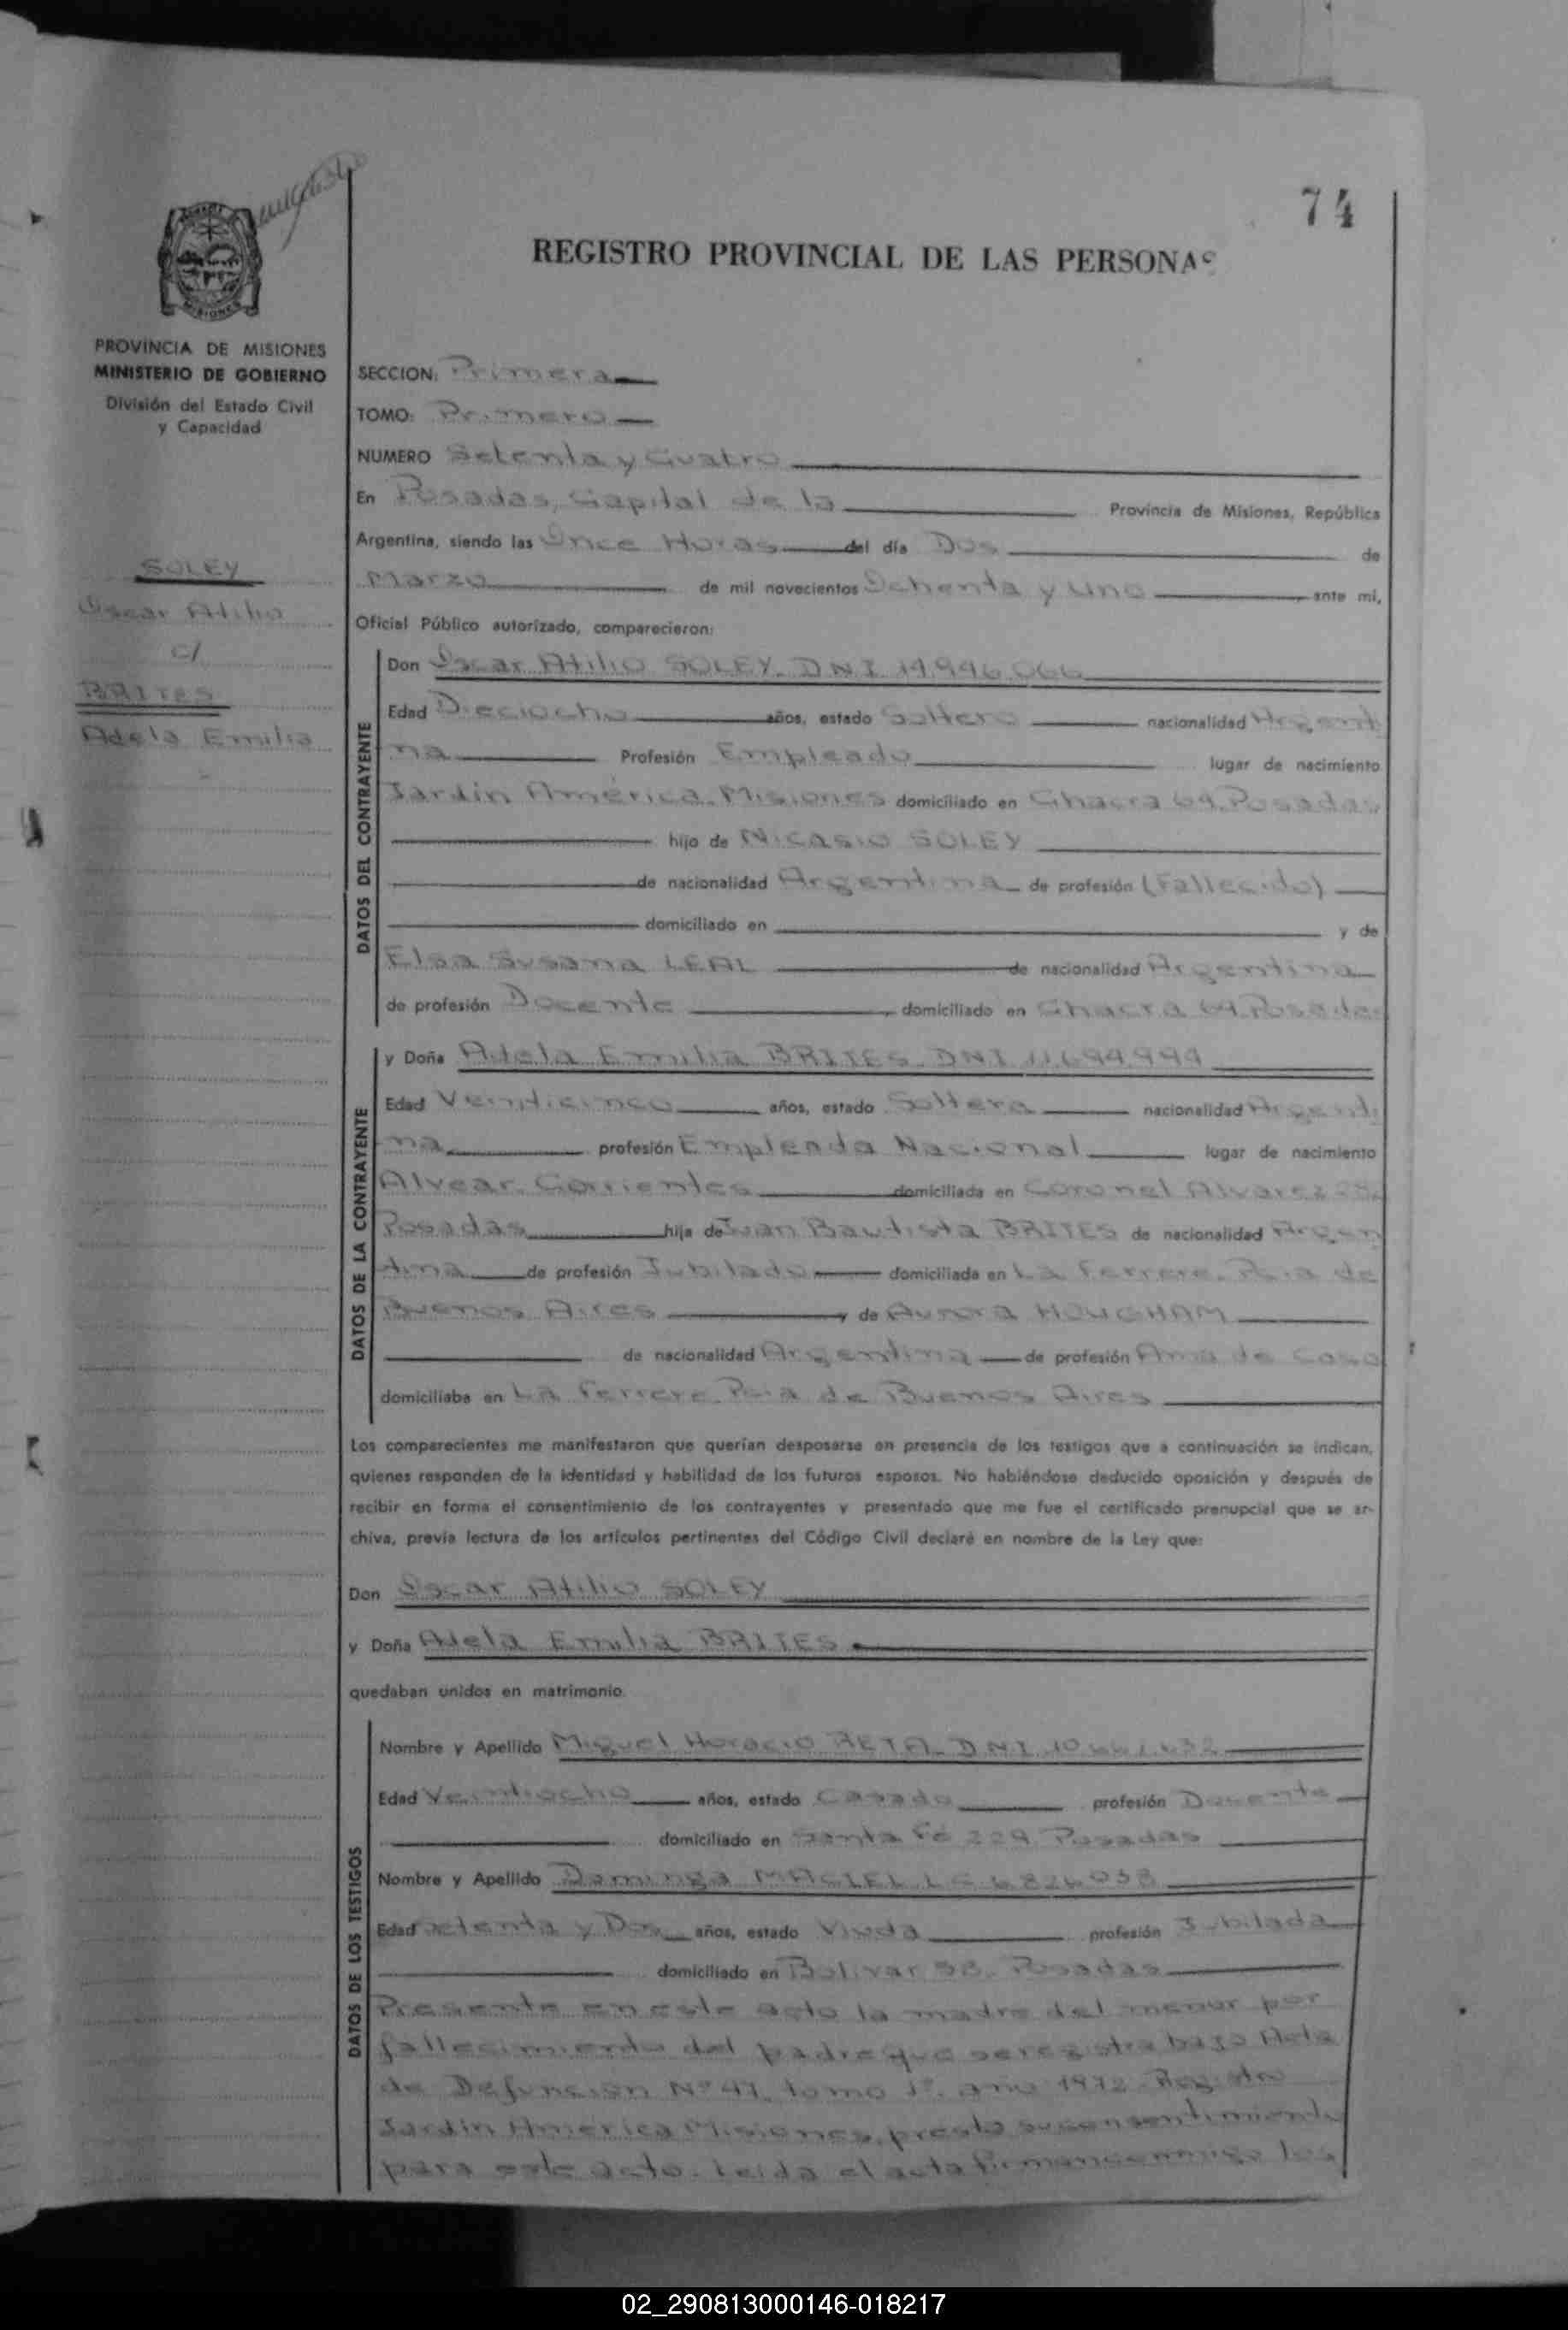 74
REGISTRO PROVINCIAL DE LAS PERSONAS
MISIONES
PROVINCIA DE MISIONES
MINISTERIO DE GOBIERNO
División del Estado Civil
y Capacidad
SOLEY
Oscar Atilio
c/
BRITES
Adela Emilia
SECCION: Primera
TOMO: Primero
NUMERO Setenta y Cuatro
En Posadas, Capital de la Provincia de Misiones, República
Argentina, siendo las Once Horas del día Dos de
Marzo de mil novecientos Ochenta y Uno ante mi,
Oficial Público autorizado, comparecieron:
DATOS DEL CONTRAYENTE
Don Oscar Atilio SOLEY. DNI 14.946.066
Edad Dieciocho años, estado Soltero nacionalidad Argenti
na Profesión Empleado lugar de nacimiento
Jardín América. Misiones domiciliado en Chacra 64. Posadas
hijo de Nicasio SOLEY
de nacionalidad Argentina de profesión (Fallecido)
domiciliado en y de
Elsa Susana LEAL de nacionalidad Argentina
de profesión Docente domiciliado en Chacra 64. Posadas
DATOS DE LA CONTRAYENTE
y Doña Adela Emilia BRITES. DNI 11.694.994
Edad Veinticinco años, estado Soltera nacionalidad Argenti
na profesión Empleada Nacional lugar de nacimiento
Alvear. Corrientes domiciliada en Coronel Alvarez
Posadas hija de Juan Bautista BRITES de nacionalidad Argen
tina de profesión Jubilado domiciliada en La Ferrere. Pcia de
Buenos Aires y de Aurora HOUGHAM
de nacionalidad Argentina de profesión Ama de Casa
domiciliaba en La Ferrere. Pcia de Buenos Aires
Los comparecientes me manifestaron que querían desposarse en presencia de los testigos que a continuación se indican,
quienes responden de la identidad y habilidad de los futuros esposos. No habiéndose deducido oposición y después de
recibir en forma el consentimiento de los contrayentes y presentado que me fue el certificado prenupcial que se ar-
chiva, previa lectura de los artículos pertinentes del Código Civil declaré en nombre de la Ley que:
Don Oscar Atilio SOLEY
y Doña Adela Emilia BRITES
quedaban unidos en matrimonio.
DATOS DE LOS TESTIGOS
Nombre y Apellido Miguel Horacio RETA. DNI 10.661.632
Edad Veintiocho años, estado Casado profesión Docente
domiciliado en Santa Fé 229. Posadas
Nombre y Apellido Dominga MACIEL LC 6826038
Edad Setenta y Dos años, estado Viuda profesión Jubilada
domiciliado en Bolivar 58. Posadas
Presente en este acto la madre del menor por
fallecimiento del padre que se registra bajo Acta
de Defunción Nº 47 tomo 1º año 1972. Registro
Jardín América Misiones, presta su consentimiento
para este acto. Leida el acta firman conmigo los
02_290813000146-018217